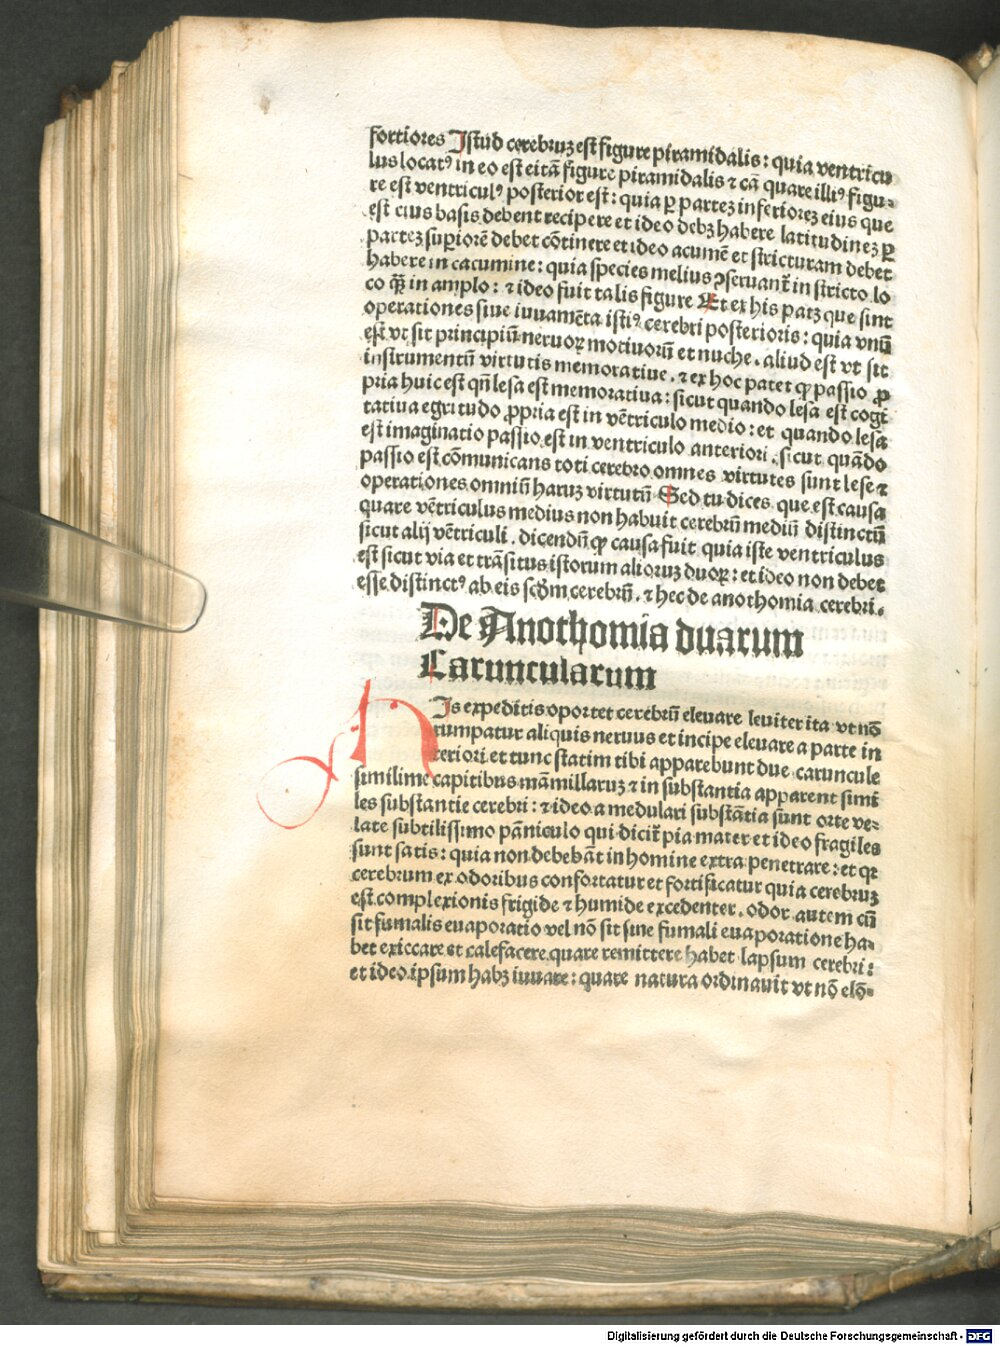 fortiores Istud cerebruz est figure piramidalis: quia ventricu
lus locatꝰ in eo est eitā figure piramidalis ⁊ cā quare illiꝰ figu-
re est ventriculꝰ posterior est: quia ꝑ partez inferiorez eius que
est eius basis debent recipere et ideo debꝫ habere latitudinez ꝑ
partez supiorē debet cōtinere et ideo acumē et stricturam debet
habere in cacumine: quia species melius ꝯseruant᷑ in stricto lo
co q̄ꝫ in amplo: ⁊ ideo fuit talis figure Et ex his patꝫ que sint
operationes siue iuuamēta istiꝰ cerebri posterioris: quia vnū
est vt sit principiū neruoꝝ motiuorū et nuche. aliud est vt sit
instrumentū virtutis memoratiue. ⁊ ex hoc patet ꝙ passio ꝓ
pria huic est qn̄ lesa est memoratiua: sicut quando lesa est cogi
tatiua egritudo ꝓpria est in vētriculo medio: et quando lesa
est imaginatio passio est in ventriculo anteriori. sicut quādo
passio est cōmunicans toti cerebro omnes virtutes sunt lese ⁊
operationes omniū haruz virtutū Sed tu dices que est causa
quare vētriculus medius non habuit cerebrū mediū distinctū
sicut alij vētriculi. dicendū ꝙ causa fuit quia iste ventriculus
est sicut via et trāsitus istorum alioruz duoꝝ: et ideo non debet
esse distinctꝰ ab eis scd̄m cerebrū. ⁊ hec de anothomia cerebri.
De Anothomia duarum
Caruncularum
HIs expeditis oportet cerebrū eleuare leuiter ita vt nō
rumpatur aliquis neruus et incipe eleuare a parte in
teriori et tunc statim tibi apparebunt due caruncule
similime capitibus māmillaruz ⁊ in substantia apparent simi
les substantie cerebri: ⁊ ideo a medulari substātia sunt orte ve-
late subtilissimo pāniculo qui dicit᷑ pia mater et ideo fragiles
sunt satis: quia non debebāt in homine extra penetrare: et qꝛ
cerebrum ex odoribus confortatur et fortificatur quia cerebruz
est complexionis frigide ⁊ humide excedenter. odor autem cū
sit fumalis euaporatio vel nō sit sine fumali euaporatione ha-
bet exiccare et calefacere quare remittere habet lapsum cerebri:
et ideo ipsum habꝫ iuuare: quare natura ordinauit vt nō elō-
Digitalisierung gefördert durch die Deutsche Forschungsgemeinschaft - DFG